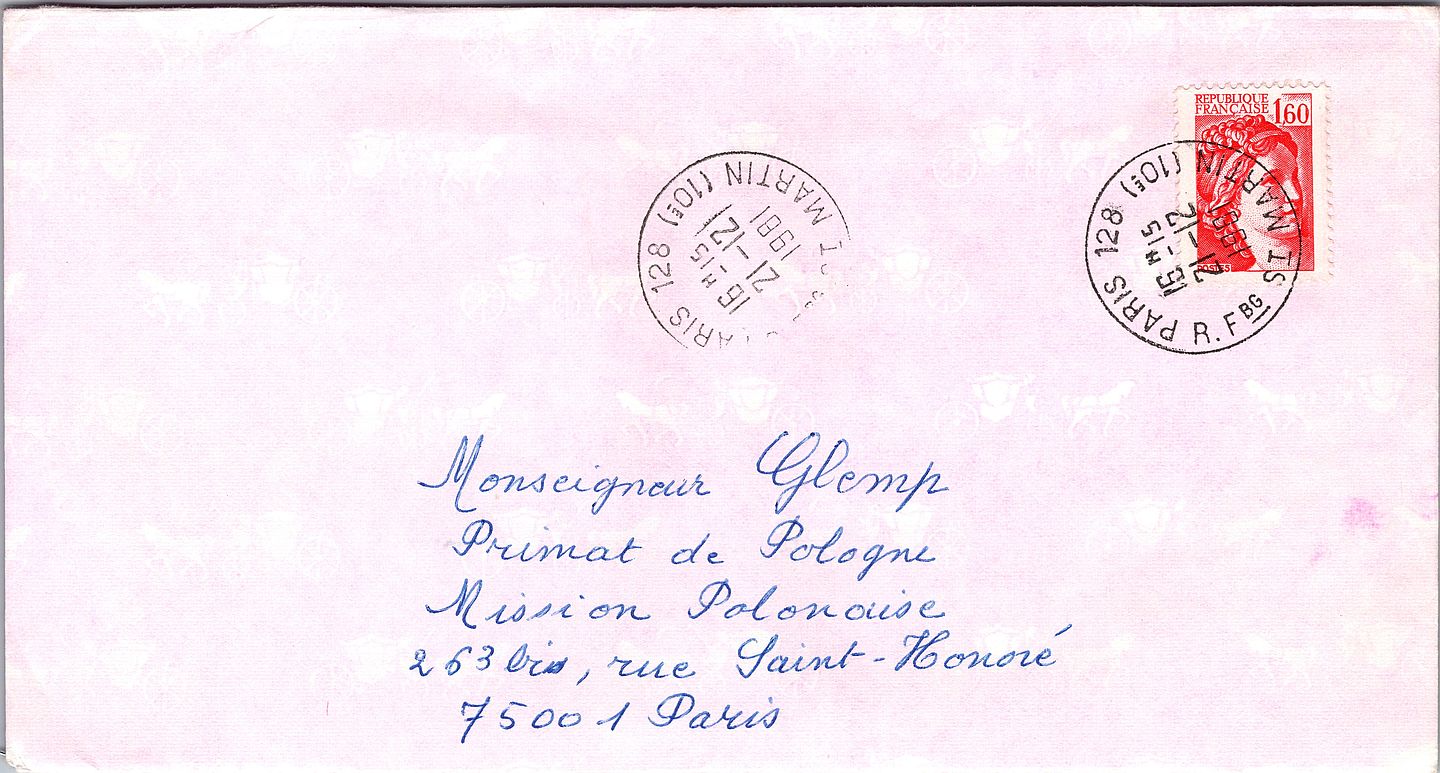 REPUBLIQUE
FRANÇAISE 1,60
POSTES
PARIS 128 (10E) R. FBG ST MARTIN
16H15
21-12
1981
PARIS 128 (10E) ST MARTIN
15H15
21-12
1981
Monseigneur Glemp
Primat de Pologne
Mission Polonaise
263 bis, rue Saint-Honoré
75001 Paris